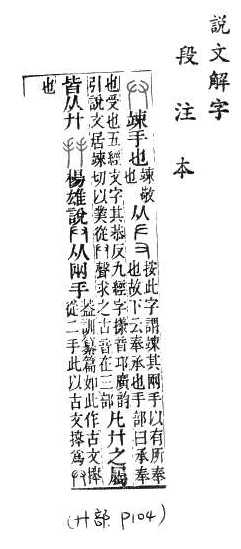 說文解字
段注本
竦手也竦敬也从𠂇又按此字謂竦其兩手以有所奉也故下云奉承也手部曰承奉
也受也五經文字其恭反九經字樣音邛廣韵引說文居竦切以業從𠬞聲求之古音在三部凡廾之屬
皆从廾 楊雄說𠬞从兩手蓋訓纂篇如此作古文從二手此以古文爲𠬞
也
(廾部 P104)